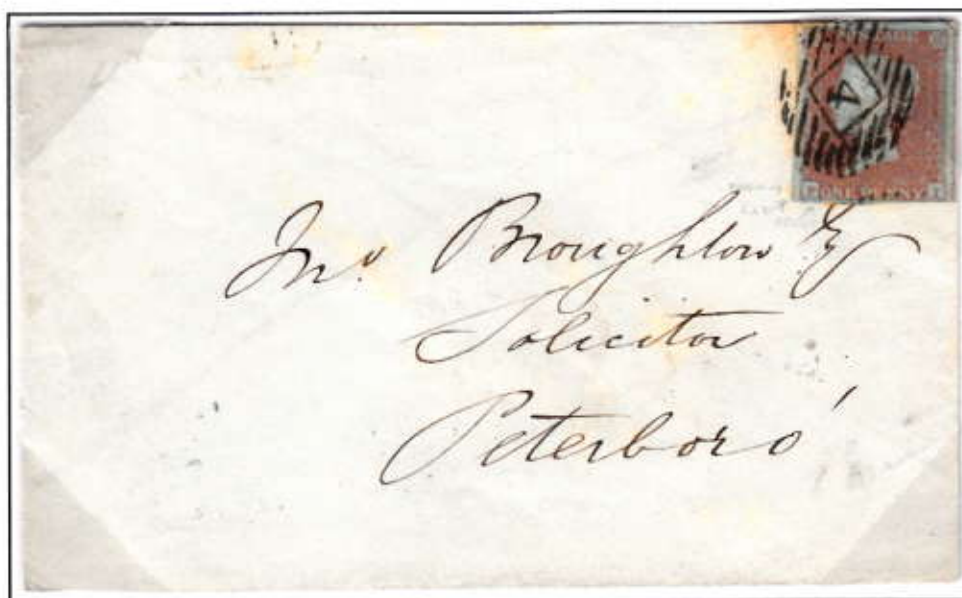 4
ONE PENNY
Jno Broughton Esq
Solicitor
Peterboro'